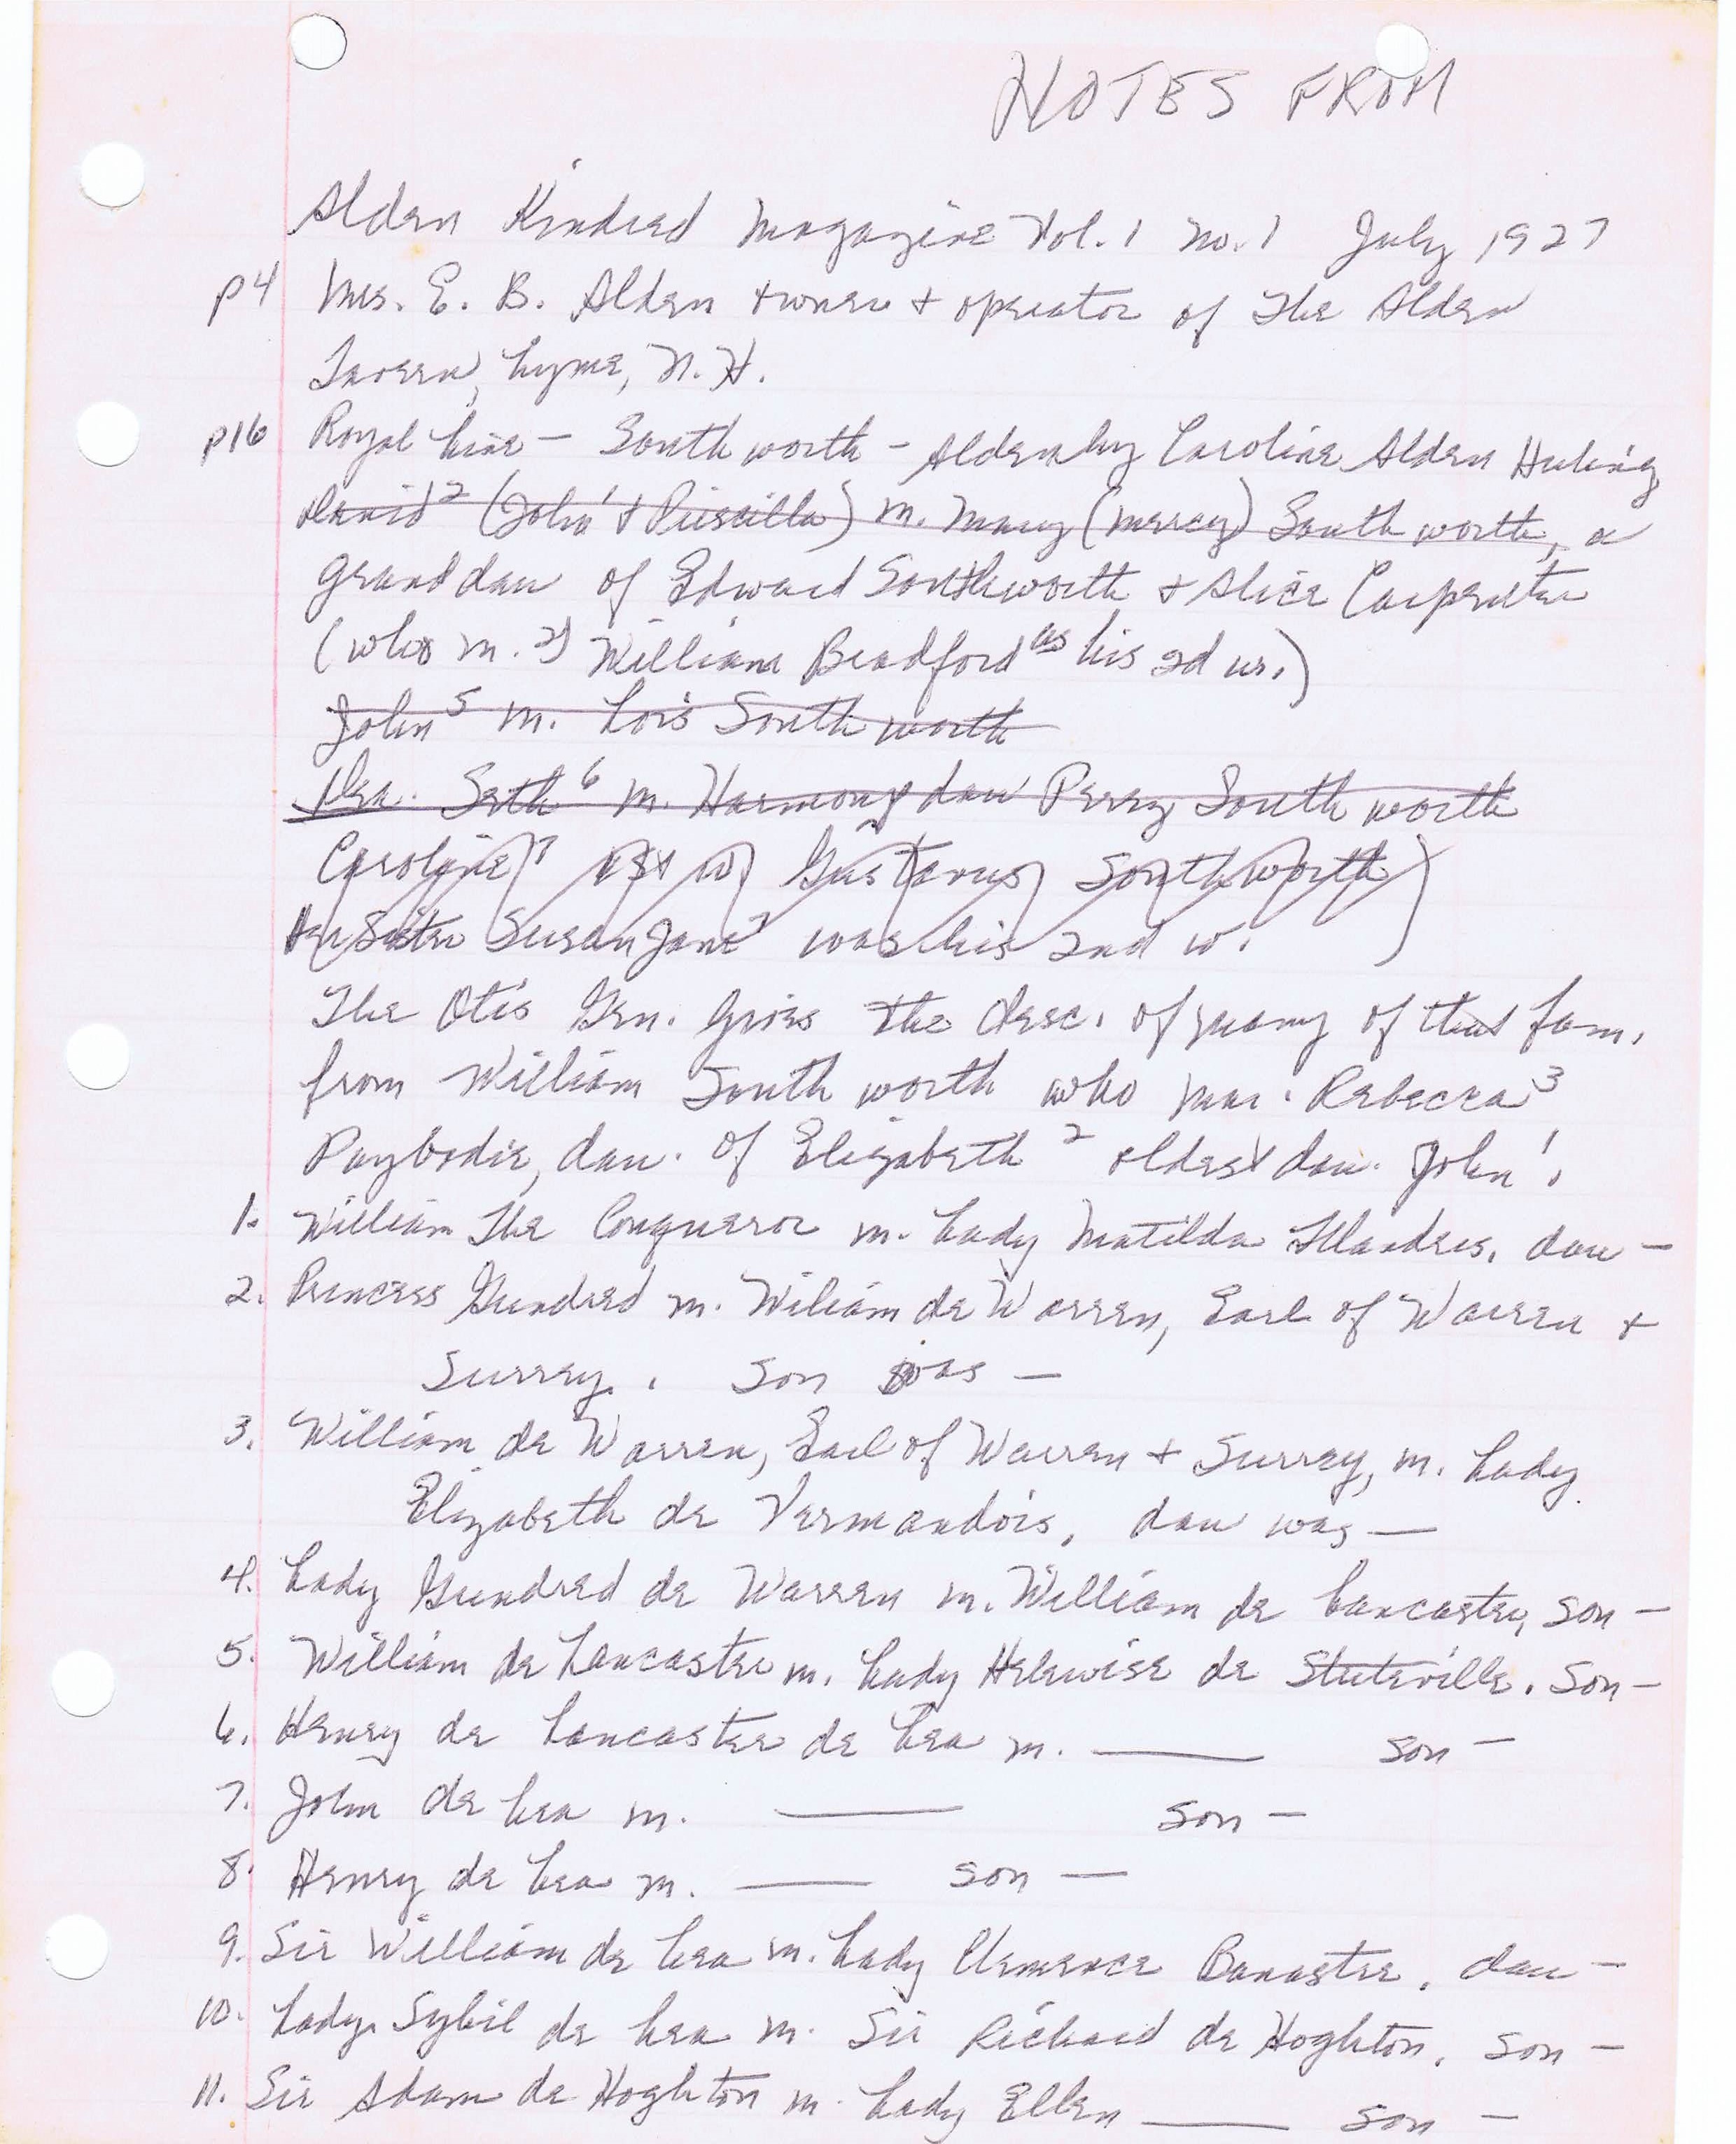 NOTES FROM
Alden Kindred Magazine Vol. 1 No. 1 July 1927
p4 Mrs. E. B. Alden owner + operator of The Alden
Tavern, Lyme, N. H.
p16 Royal Line - Southworth - Alden by Caroline Alden Huling
David² (John¹ & Priscilla) m. Mary (Mercy) Southworth, a
grand dau of Edward Southworth + Alice Carpenter
(who m. 2) William Bradford as his 2d w.)
John⁵ m. Lois Southworth
Dea. Seth⁶ m. Harmony dau Perez Southworth
Caroline⁷ 1st w) Gustavus Southworth)
Her Sister Susan Jane⁷ was his 2nd w.
The Otis Gen. gives the desc. of many of that fam.
from William Southworth who mar. Rebecca³
Paybodie, dau. of Elizabeth² oldest dau. John¹.
1. William The Conqueror m. Lady Matilda Flandres. dau -
2. Princess Gundred m. Wiliam de Warren, Earl of Warren +
Surrey. . Son was -
3. William de Warren, Earl of Warren + Surrey, m. Lady
Elizabeth de Vermandois, dau was -
4. Lady Gundred de Warren m. William de Lancaster, son -
5. William de Lancaster m. Lady Helewise de Stuteville. Son -
6. Henry de Lancaster de Lea m. ——— son -
7. John de Lea m. ——— son -
8. Henry de Lea m. ——— son -
9. Sir William de Lea m. Lady Clemence Banaster. dau -
10. Lady Sybil de Lea m. Sir Richard de Hoghton. son -
11. Sir Adam de Hoghton m. Lady Ellen ——— son -